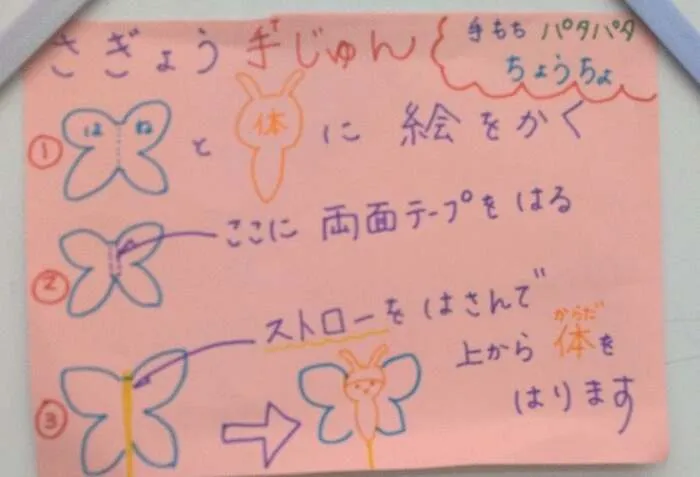 さぎょう手じゅん
手もち パタパタ
ちょうちょ
① はね と 体 に 絵をかく
② ここに 両面テープをはる
③ ストローをはさんで
上から 体を
からだ
はります